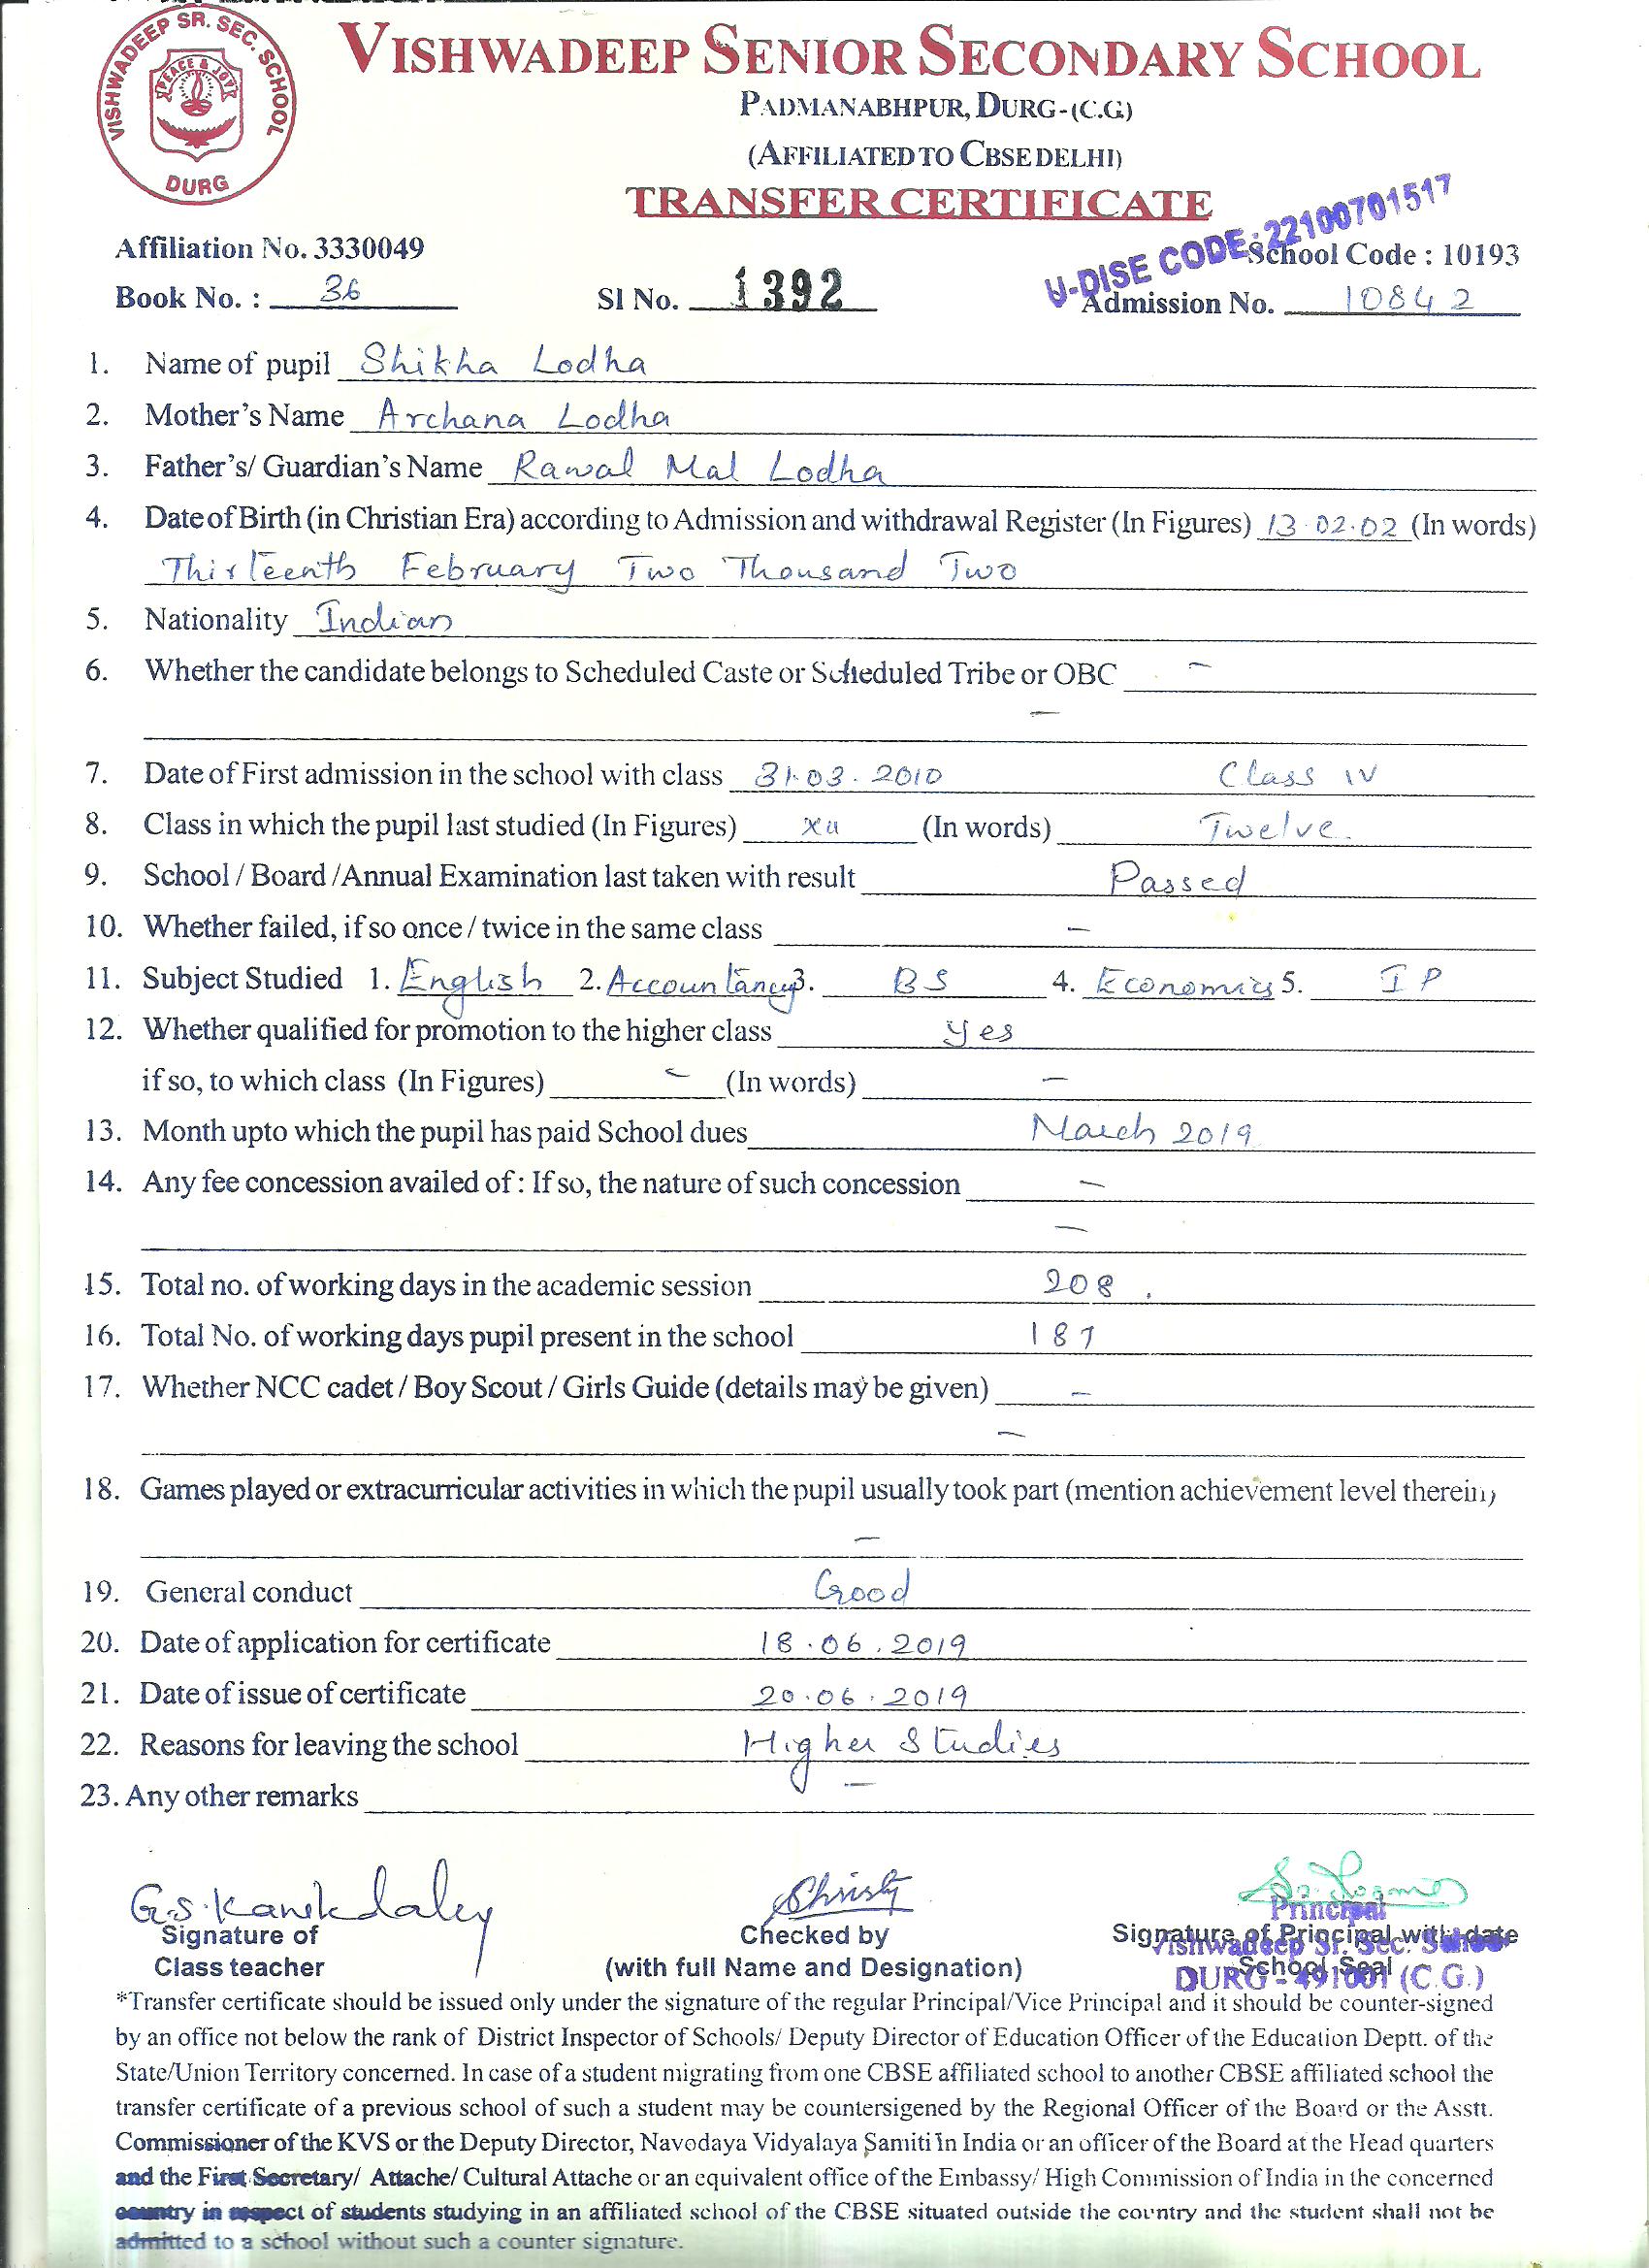 VISHWADEEP SR. SEC. SCHOOL
PEACE & JOY
DURG
VISHWADEEP SENIOR SECONDARY SCHOOL
PADMANABHPUR, DURG-(C.G)
(AFFILIATED TO CBSE DELHI)
TRANSFER CERTIFICATE
U-DISE CODE: 22100701517
Affiliation No. 3330049 School Code : 10193
Book No. : 36 Sl No. 1392 Admission No. 10842
1. Name of pupil Shikha Lodha
2. Mother's Name Archana Lodha
3. Father's/ Guardian's Name Rawal Mal Lodha
4. Date of Birth (in Christian Era) according to Admission and withdrawal Register (In Figures) 13.02.02 (In words)
Thirteenth February Two Thousand Two
5. Nationality Indian
6. Whether the candidate belongs to Scheduled Caste or Scheduled Tribe or OBC –
–
7. Date of First admission in the school with class 31.03.2010 Class IV
8. Class in which the pupil last studied (In Figures) XII (In words) Twelve.
9. School / Board /Annual Examination last taken with result Passed
10. Whether failed, if so once / twice in the same class –
11. Subject Studied 1. English 2. Accountancy 3. BS 4. Economics 5. IP
12. Whether qualified for promotion to the higher class Yes
if so, to which class (In Figures) – (In words) –
13. Month upto which the pupil has paid School dues March 2019
14. Any fee concession availed of : If so, the nature of such concession –
–
15. Total no. of working days in the academic session 208.
16. Total No. of working days pupil present in the school 187
17. Whether NCC cadet / Boy Scout / Girls Guide (details may be given) –
–
18. Games played or extracurricular activities in which the pupil usually took part (mention achievement level therein)
–
19. General conduct Good
20. Date of application for certificate 18.06.2019
21. Date of issue of certificate 20.06.2019
22. Reasons for leaving the school Higher Studies
23. Any other remarks –
Christy
Principal
Signature of Checked by Signature of Principal with date
Vishwadeep Sr. Sec. School
Class teacher (with full Name and Designation) School Seal
DURG - 491001 (C.G.)
*Transfer certificate should be issued only under the signature of the regular Principal/Vice Principal and it should be counter-signed
by an office not below the rank of District Inspector of Schools/ Deputy Director of Education Officer of the Education Deptt. of the
State/Union Territory concerned. In case of a student migrating from one CBSE affiliated school to another CBSE affiliated school the
transfer certificate of a previous school of such a student may be countersigened by the Regional Officer of the Board or the Asstt.
Commissioner of the KVS or the Deputy Director, Navodaya Vidyalaya Samiti in India or an officer of the Board at the Head quarters
and the First Secretary/ Attache/ Cultural Attache or an equivalent office of the Embassy/ High Commission of India in the concerned
country in respect of students studying in an affiliated school of the CBSE situated outside the country and the student shall not be
admitted to a school without such a counter signature.